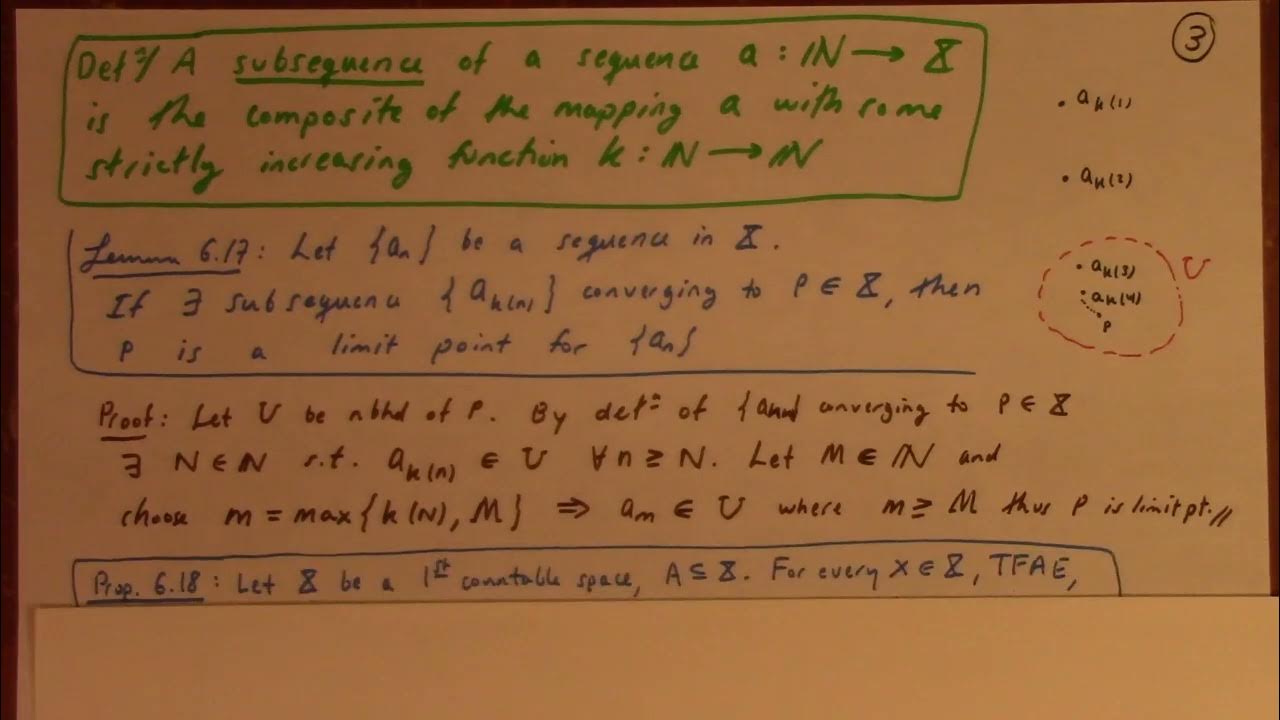 ③
Defⁿ/ A subsequence of a sequence a : ℕ → X
is the composite of the mapping a with some
strictly increasing function k : ℕ → ℕ
• a_{k(1)}
• a_{k(2)}
• a_{k(3)}
• a_{k(4)}
p
U
Lemma 6.17 : Let {aₙ} be a sequence in X.
If ∃ subsequence {a_{k(n)}} converging to p ∈ X, then
p is a limit point for {aₙ}
Proof : Let U be nbhd of p. By defⁿ of {a_{k(n)}} converging to p ∈ X
∃ N ∈ ℕ s.t. a_{k(n)} ∈ U ∀ n ≥ N. Let M ∈ ℕ and
choose m = max{k(N), M} ⇒ aₘ ∈ U where m ≥ M thus p is limit pt.//
Prop. 6.18 : Let X be a 1st countable space, A ⊆ X. For every x ∈ X, TFAE,